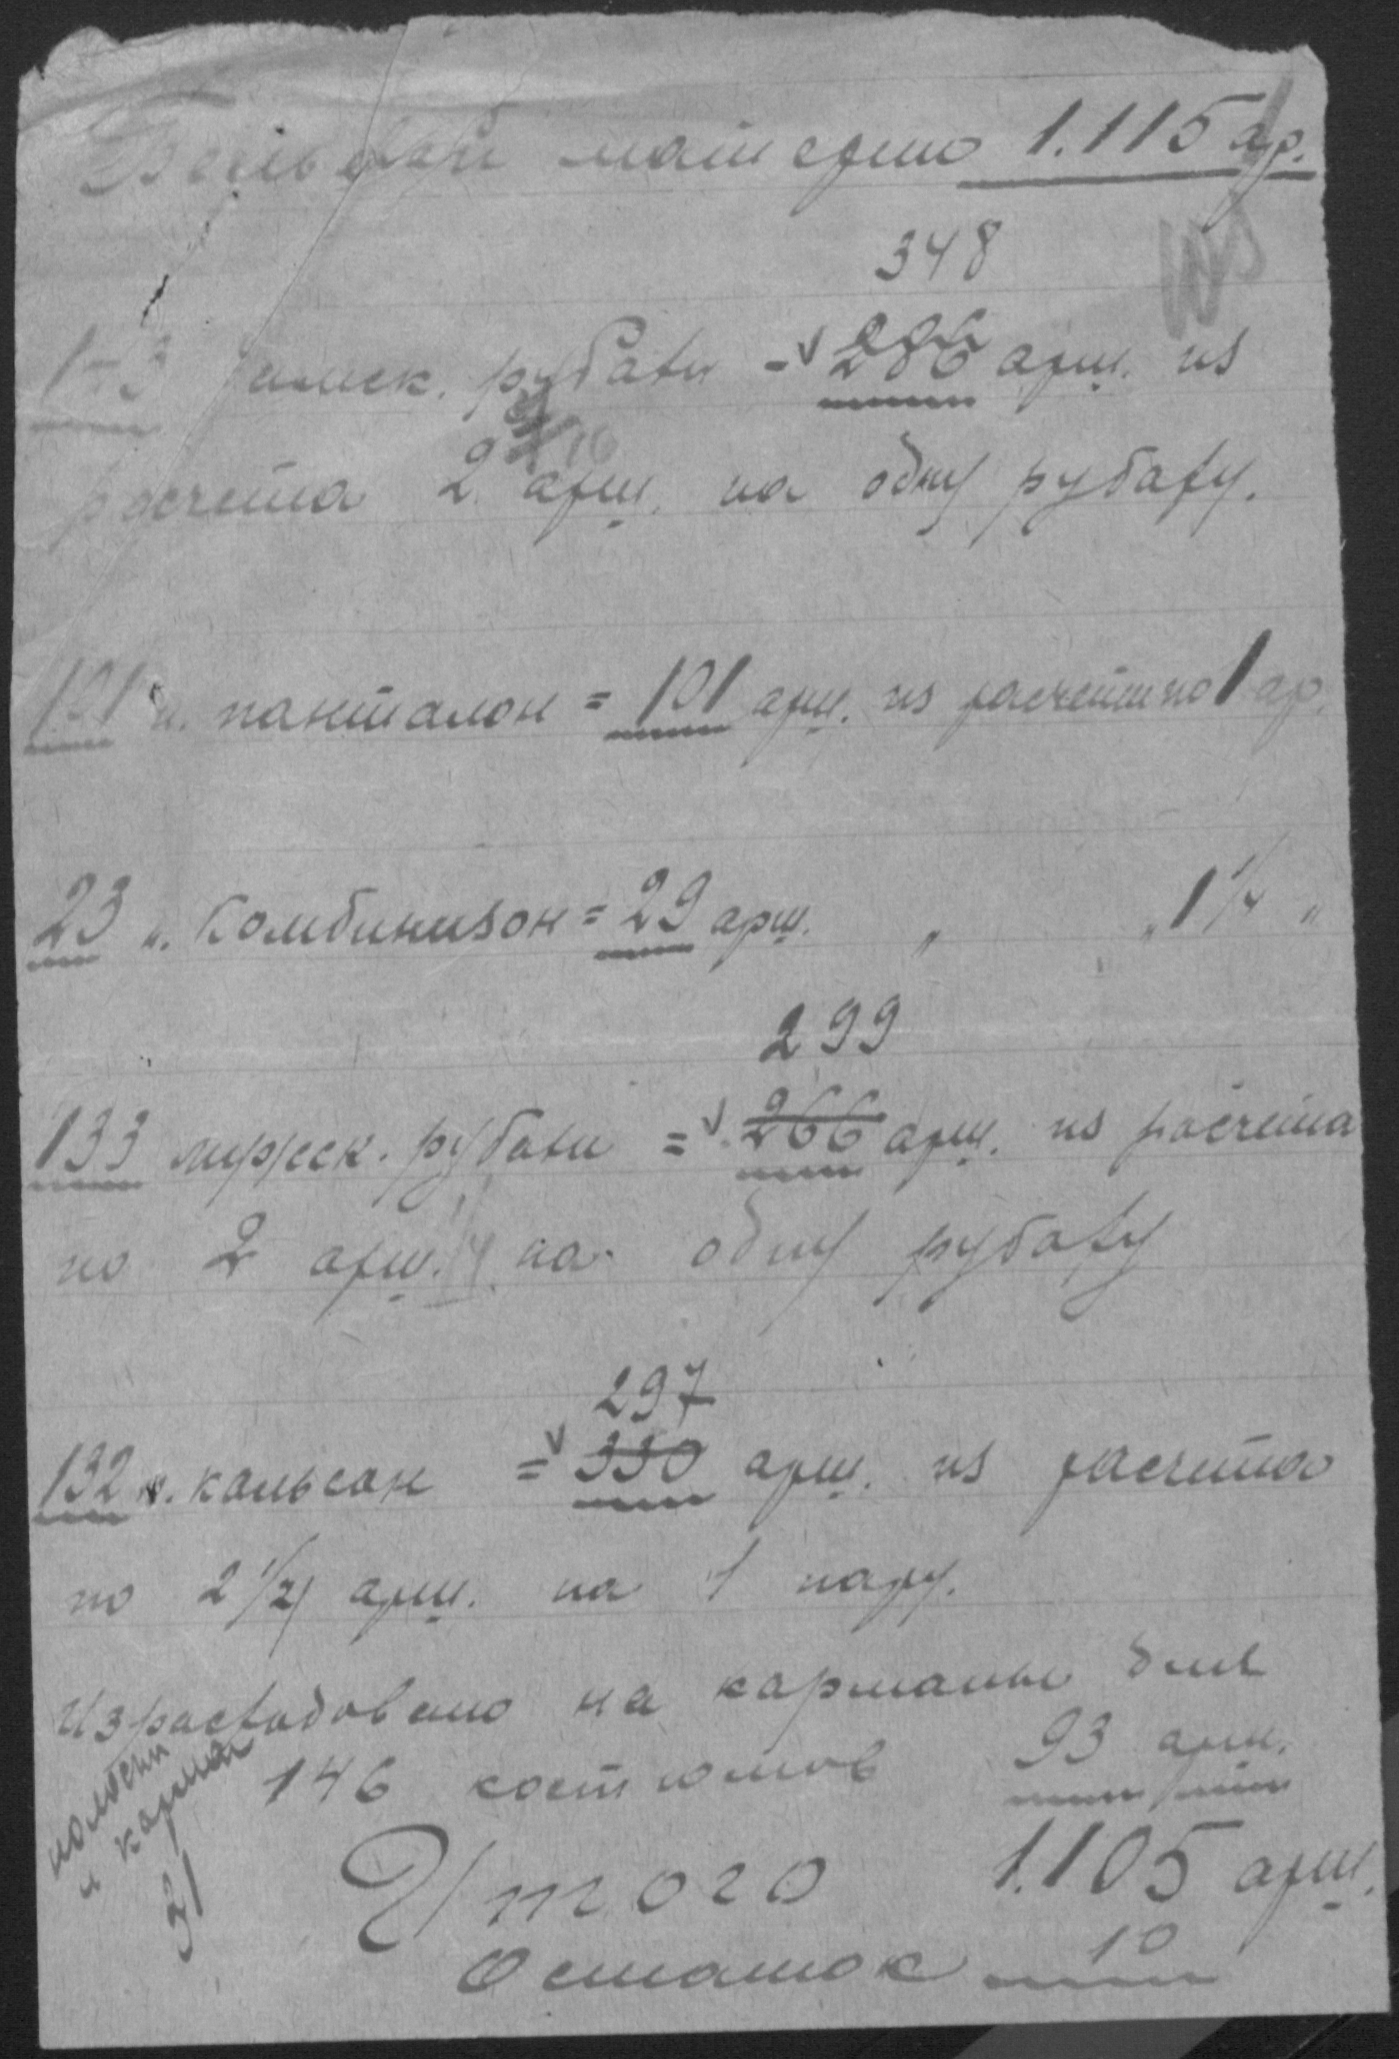 Бельевой материи 1.115 ар.
348
143 дамск. рубахи = 286 арш. из
расчета 2 арш. на одну рубаху.
101 п. панталон = 101 арш. из расчета по 1 ар.
23 п. Комбинизон = 29 арш. " " 1 1/4 "
299
133 мужск. рубахи = 266 арш. из расчета
по 2 арш. 1/4 на одну рубаху
297
132 п. кальсон = 330 арш. из расчета
по 2 1/4 арш. на 1 пару.
Израсходовано на карманы для
146 костюмов 93 арш.
и карман
31
Итого 1.105 арш.
Остаток 10